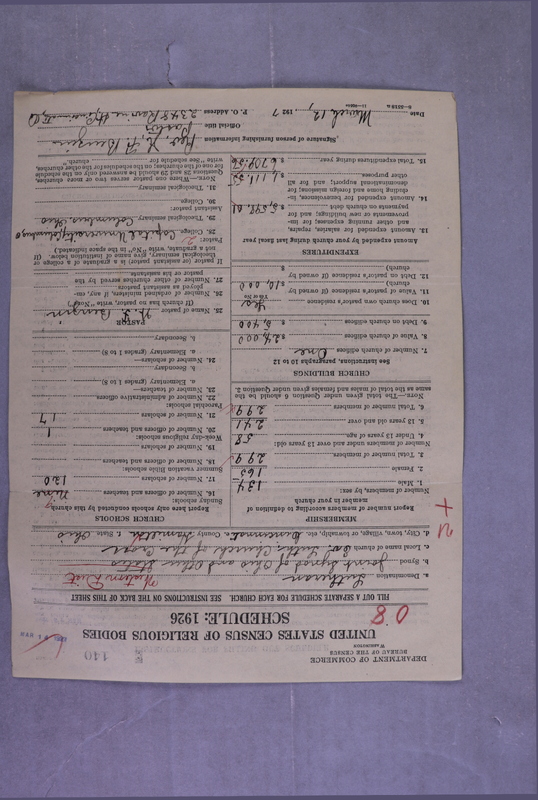 DEPARTMENT OF COMMERCE
BUREAU OF THE CENSUS
WASHINGTON
140
UNITED STATES CENSUS OF RELIGIOUS BODIES
SCHEDULE: 1926
08
FILL OUT A SEPARATE SCHEDULE FOR EACH CHURCH. SEE INSTRUCTIONS ON THE BACK OF THIS SHEET
a. Denomination Lutheran
b. Synod Joint Synod of Ohio and Other States
c. Local name of church Ev. Luth. Church of the Cross
d. City, town, village, or township, etc. Cincinnati County Hamilton State Ohio
MEMBERSHIP
Number of members according to definition of member in your church
Number of members, by sex:
1. Male 134
2. Female 165
3. Total number of members 299
Number of members under and over 13 years old:
4. Under 13 years of age 58
5. 13 years old and over 241
6. Total number of members 299
NOTE.—The total given under Question 6 should be the same as the total of males and females given under Question 3.
CHURCH BUILDINGS
See instructions, paragraphs 10 to 12
7. Number of church edifices One
8. Value of church edifices $ 24,000
9. Debt on church edifices $ 6,400
10. Does church own pastor's residence Yes
(Yes or No)
11. Value of pastor's residence (if owned by church) $ 10,000
12. Debt on pastor's residence (if owned by church) $
EXPENDITURES
Amount expended by your church during last fiscal year
13. Amount expended for salaries, repairs, and other running expenses; for improvements or new building; and for payments on church debt $ 5,598.01
14. Amount expended for benevolences, including home and foreign missions; for denominational support; and for all other purposes $ 1,111.55
15. Total expenditures during year $ 6,709.56
CHURCH SCHOOLS
Report here only schools conducted by this church
Sunday schools:
16. Number of officers and teachers Nine
17. Number of scholars 120
Summer vacation Bible schools:
18. Number of officers and teachers
19. Number of scholars
Week-day religious schools:
20. Number of officers and teachers 1
21. Number of scholars 17
Parochial schools:
22. Number of administrative officers
23. Number of teachers—
a. Elementary (grades 1 to 8)
b. Secondary
24. Number of scholars—
a. Elementary (grades 1 to 8)
b. Secondary
PASTOR
25. Name of pastor
(If church has no pastor, write "No")
26. Number of ordained ministers, if any, employed as assistant pastors
27. Number of other churches served by the pastor or his assistants
If pastor (or assistant pastor) is a graduate of a college or theological seminary, give name of institution below. (If not a graduate, write "No" in the space indicated.)
Pastor:
28. College Capital University, Columbus, O
29. Theological seminary Columbus, Ohio
Assistant pastor:
30. College
31. Theological seminary
NOTE.—Where one pastor serves two or more churches, Questions 28 and 29 should be answered only on the schedule for one of the churches; on the schedules for the other churches, write "See schedule for church."
Signature of person furnishing information
Official title Pastor
Date March 12, 1927 P. O. Address 2348 Ravine St, Cincinnati, O